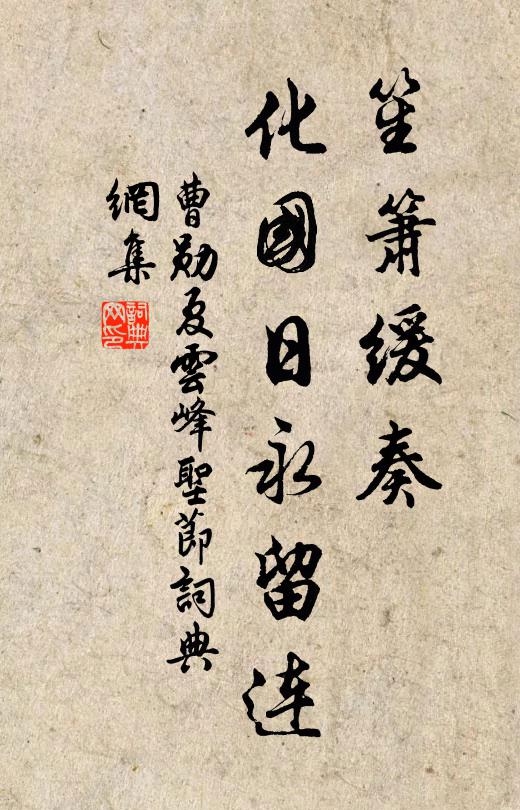 笙簫緩奏
化國日永留連
曹勛夏雲峰聖節詞典
網集
詞典
网印